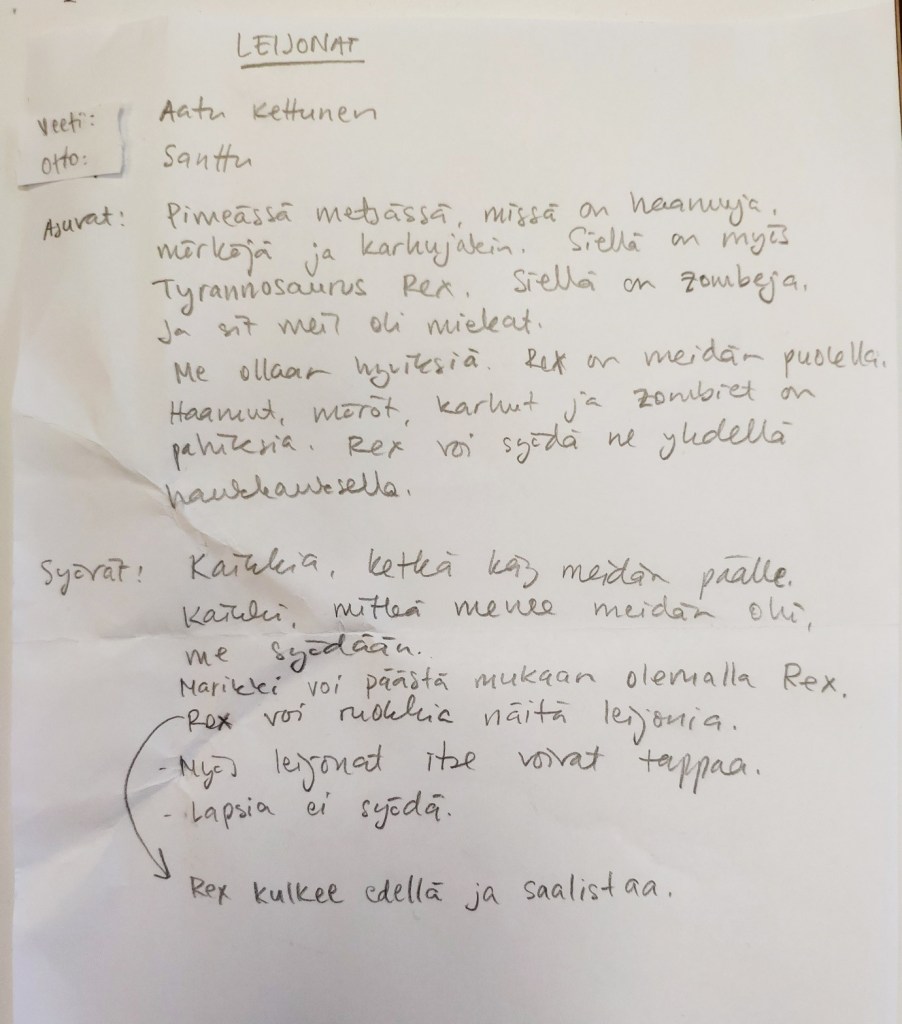 LEIJONAT
Veeti: Aatu Kettunen
Otto: Santtu
Asuvat: Pimeässä metsässä, missä on haamuja,
mörköjä ja karhujakin. Siellä on myös
Tyrannosaurus Rex. Siellä on zombeja.
Ja sit meil oli miekat.
Me ollaan hyviksiä. Rex on meidän puolella.
Haamut, möröt, karhut ja zombiet on
pahiksia. Rex voi syödä ne yhdellä
haukkauksella.
Syövät: Kaikkia, ketkä käy meidän päälle.
Kaikki, mitkä menee meidän ohi,
me syödään.
Marikki voi päästä mukaan olemalla Rex.
Rex voi ruokkia näitä leijonia.
- Myös leijonat itse voivat tappaa.
- Lapsia ei syödä.
Rex kulkee edellä ja saalistaa.